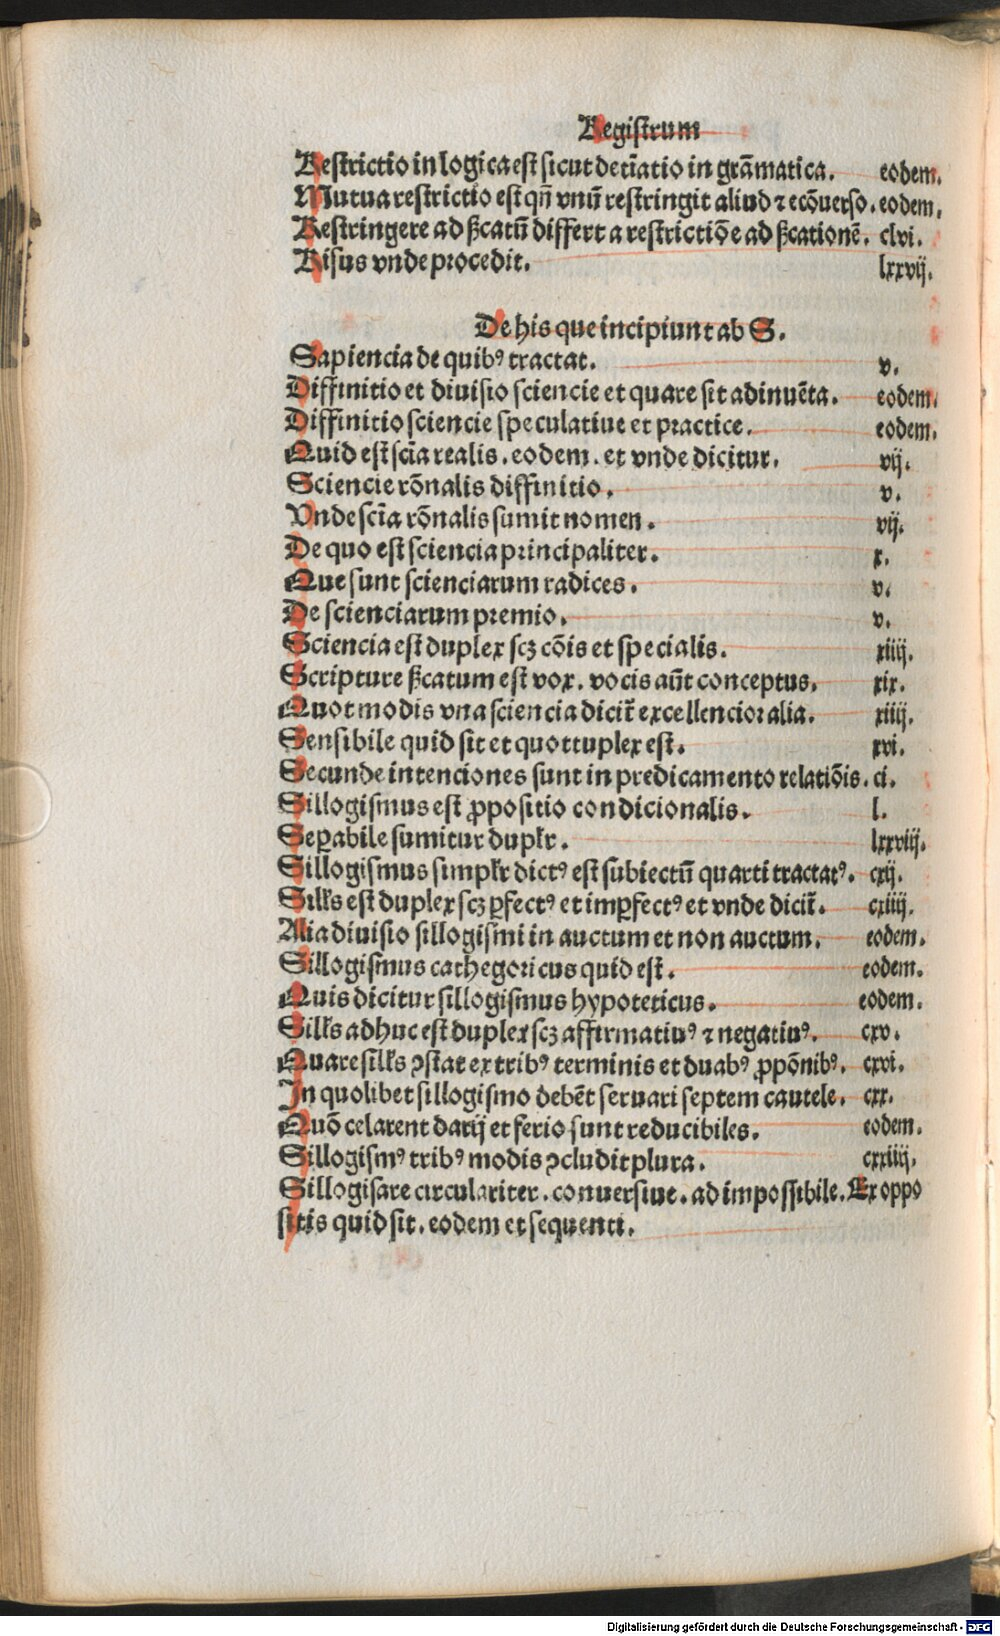 Registrum
Restrictio in logica est sicut deter̄iatio in grāmatica. eodem.
Mutua restrictio est qn̄ vnū restringit aliud ⁊ ecōuerso. eodem.
Restringere ad ßcatū differt a restrictiōe ad ßcationē. clvi.
Risus vnde procedit. lxxvij.
De his que incipiunt ab S.
Sapiencia de quibꝰ tractat. v.
Diffinitio et diuisio sciencie et quare sit adinuēta. eodem.
Diffinitio sciencie speculatiue et practice. eodem.
Quid est scīa realis. eodem. et vnde dicitur. vij.
Sciencie rōnalis diffinitio. v.
Vnde scīa rōnalis sumit nomen. vij.
De quo est sciencia principaliter. x.
Que sunt scienciarum radices. v.
De scienciarum premio. v.
Sciencia est duplex scꝫ cōis et specialis. xiiij.
Scripture ßcatum est vox. vocis aūt conceptus. xix.
Quot modis vna sciencia dicit̄ excellencior alia. xiiij.
Sensibile quid sit et quottuplex est. xvi.
Secunde intenciones sunt in predicamento relatiōis. ci.
Sillogismus est ꝓpositio condicionalis. l.
Seꝑabile sumitur duplr̄. lxxviij.
Sillogismus simplr̄ dictꝰ est subiectū quarti tractatꝰ. cxij.
Sill̄s est duplex scꝫ ꝑfectꝰ et imꝑfectꝰ et vnde dicit̄. cxiiij.
Alia diuisio sillogismi in auctum et non auctum. eodem.
Sillogismus cathegoricus quid est. eodem.
Quis dicitur sillogismus hypoteticus. eodem.
Sill̄s adhuc est duplex scꝫ affirmatiuꝰ ⁊ negatiuꝰ. cxv.
Quare sill̄s ꝯstat ex tribꝰ terminis et duabꝰ ꝓpōnibꝰ. cxvi.
In quolibet sillogismo debēt seruari septem cautele. cxx.
Quō celarent darij et ferio sunt reducibiles. eodem.
Sillogismꝰ tribꝰ modis ꝯcludit plura. cxxiiij.
Sillogisare circulariter. conuersiue. ad impossibile. Ex oppo
sitis quid sit. eodem et sequenti.
Digitalisierung gefördert durch die Deutsche Forschungsgemeinschaft - DFG